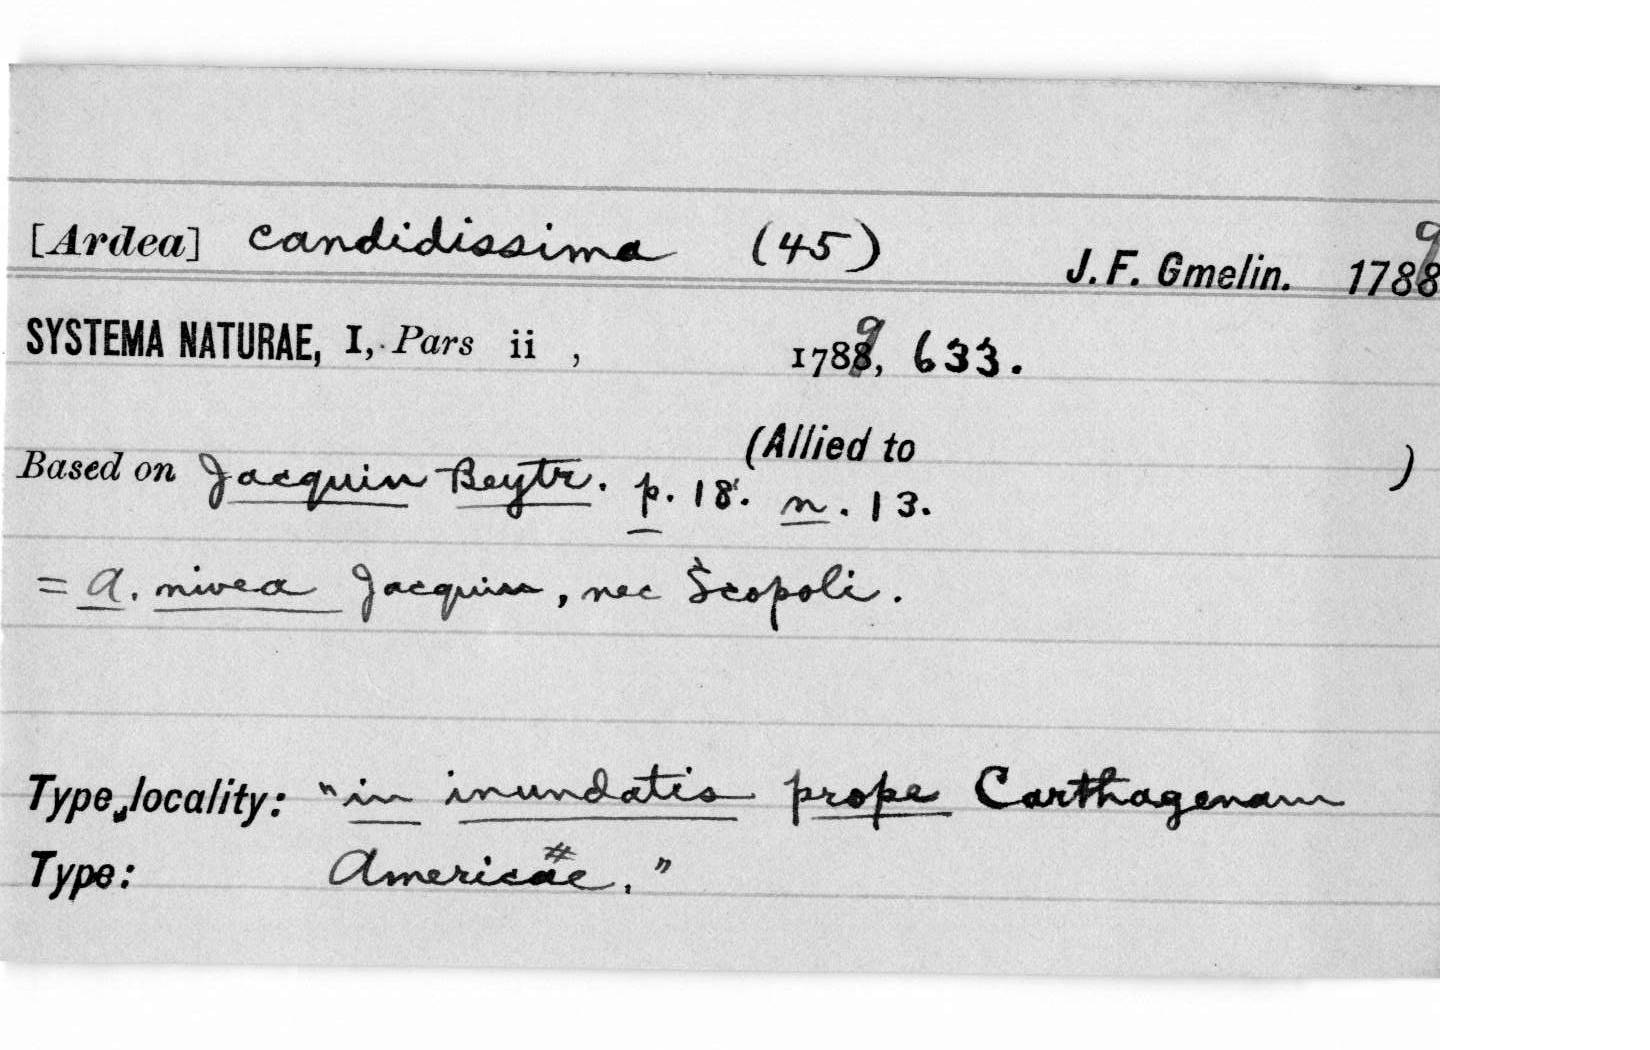 [Ardea] candidissima (45) J. F. Gmelin. 1789
SYSTEMA NATURAE, I, Pars ii , 1789, 633.
(Allied to )
Based on Jacquin Beytr. p. 18. n. 13.
= A. nivea Jacquin, nec Scopoli.
Type locality: "in inundatis prope Carthagenam
Type: Americae."